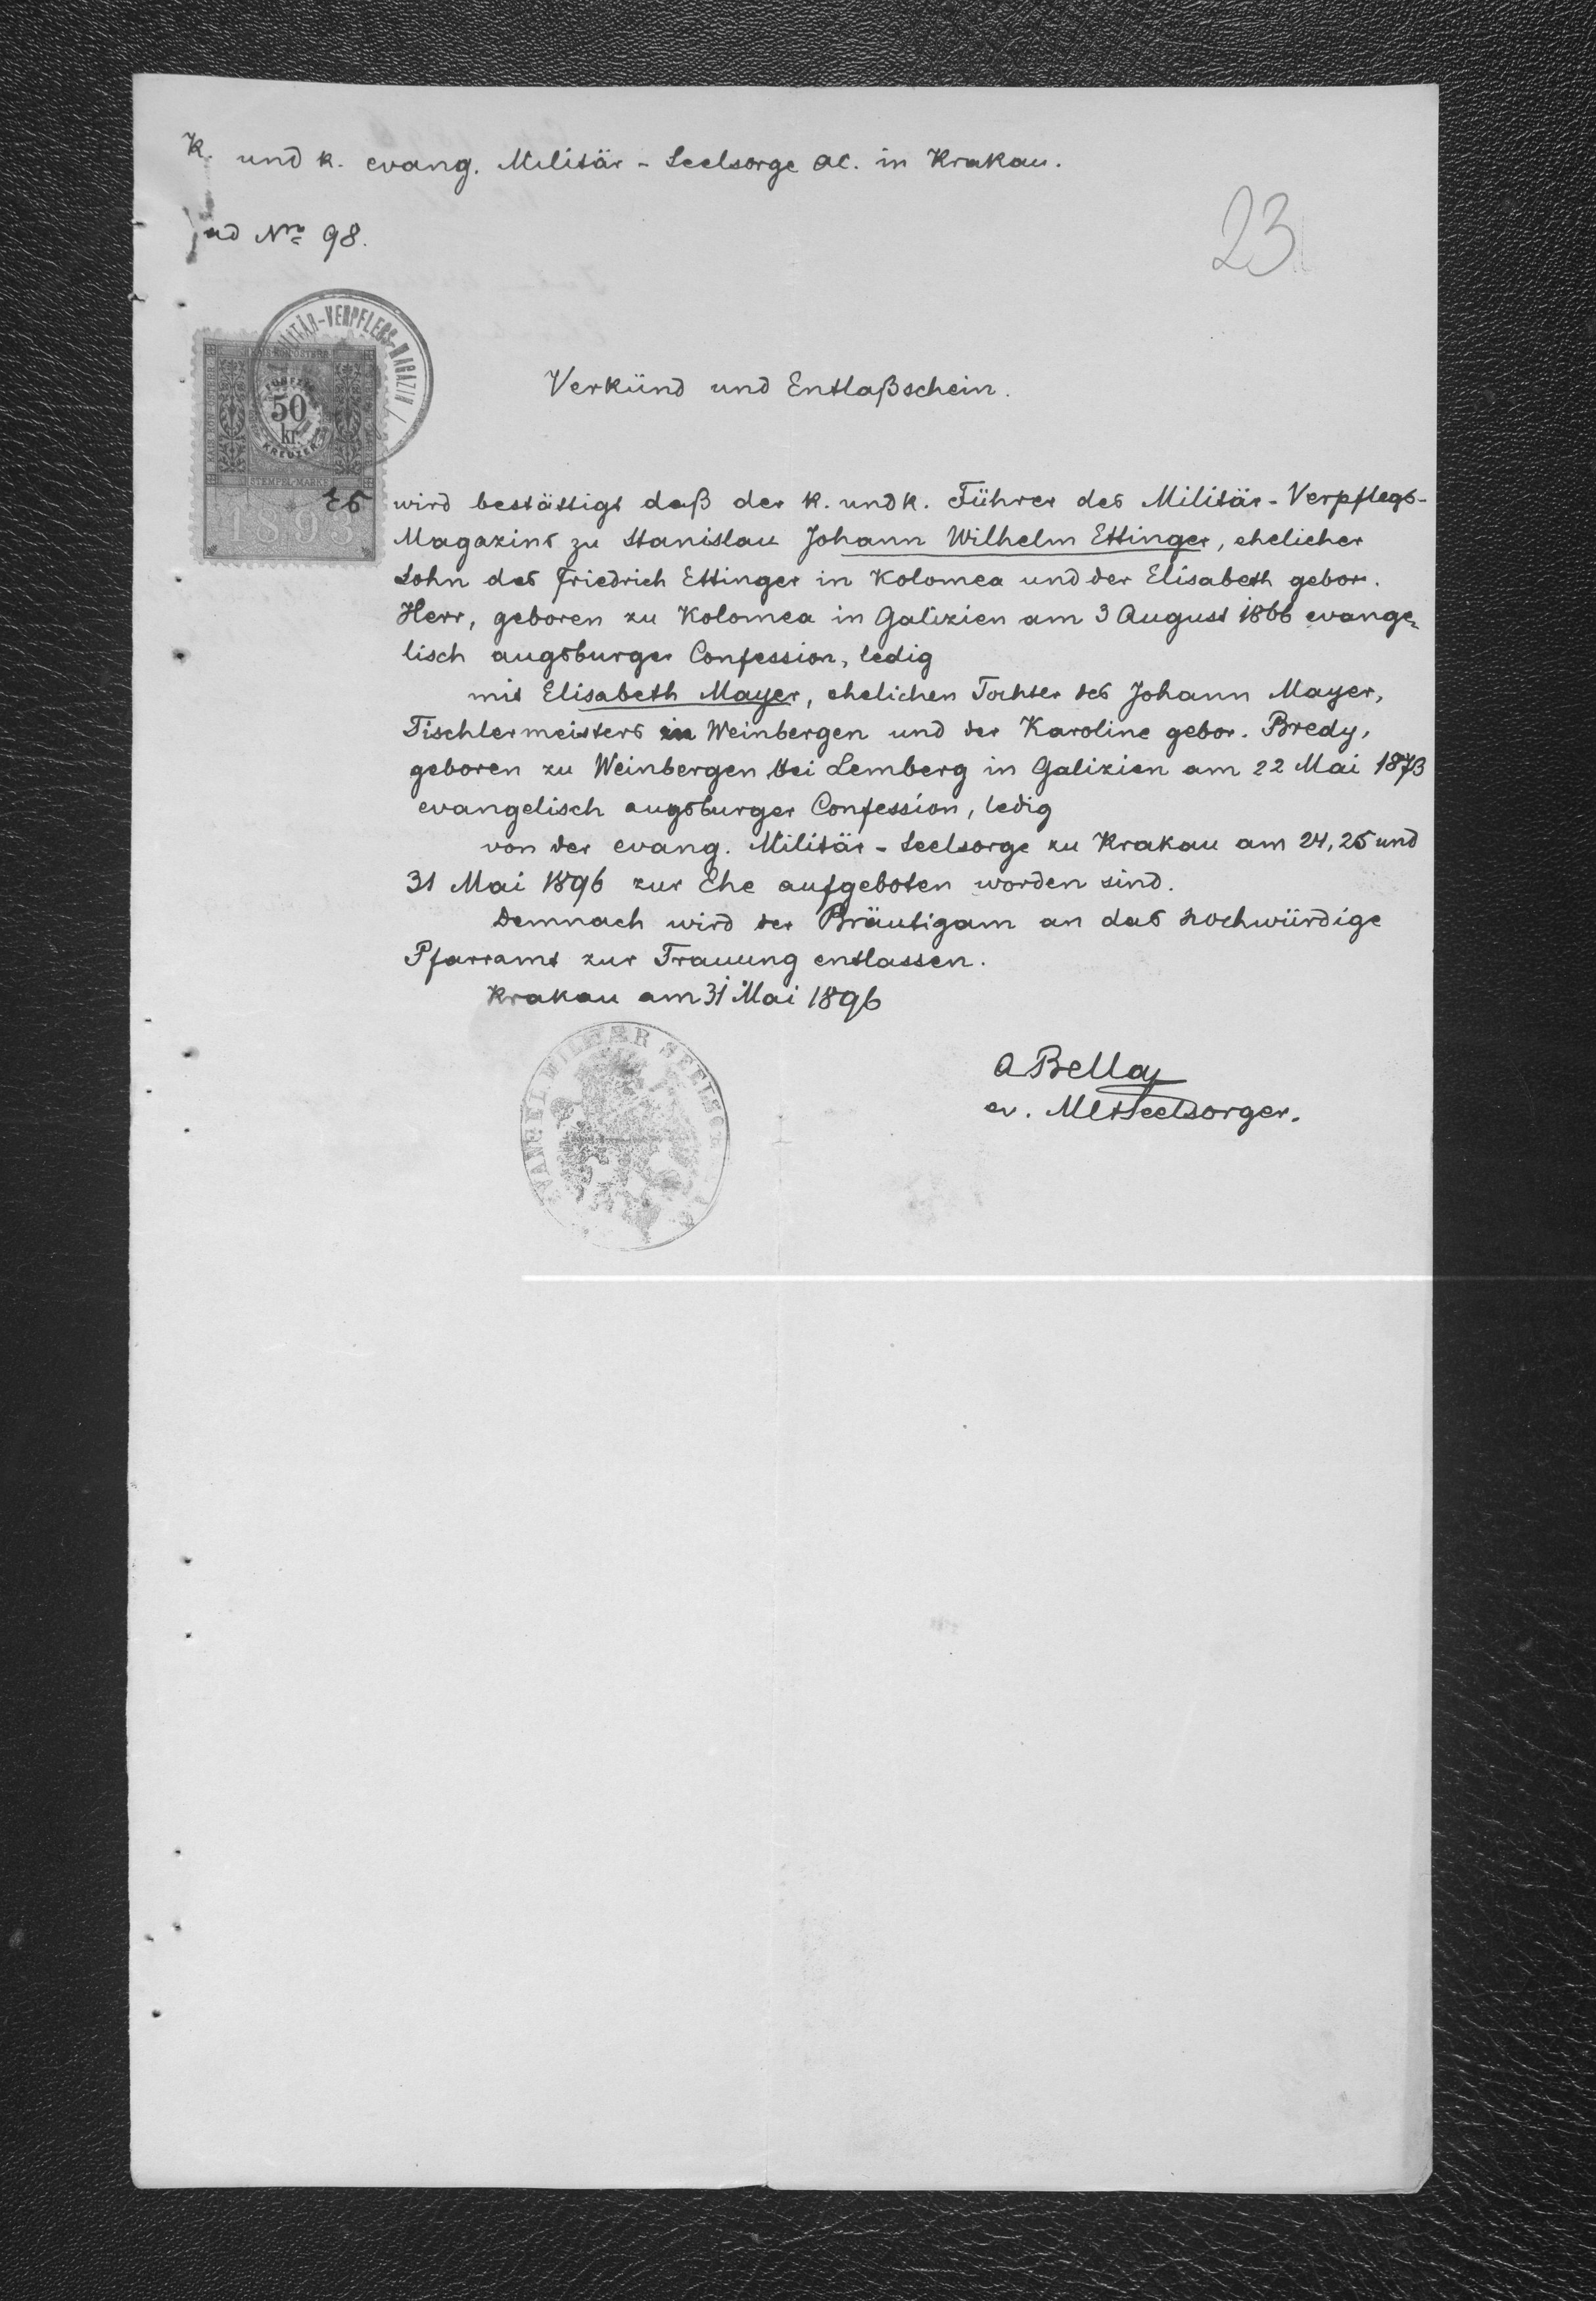 K. und k. evang. Militär - Seelsorge AC. in Krakau.
ad Nro 98.
23
MILITÄR-VERPFLEGS-MAGAZIN
50
kr.
KREUZER
STEMPEL-MARKE
1893
Verkünd und Entlaßschein.
Es wird bestättigt daß der k. und k. Führer des Militär - Verpflegs-
Magazins zu Stanislau Johann Wilhelm Ettinger, ehelicher
Sohn des Friedrich Ettinger in Kolomea und der Elisabeth gebor.
Herr, geboren zu Kolomea in Galizien am 3 August 1866 evange=
lisch augsburger Confession, ledig
mit Elisabeth Mayer, ehelichen Tochter des Johann Mayer,
Tischlermeisters in Weinbergen und der Karoline gebor. Bredy,
geboren zu Weinbergen bei Lemberg in Galizien am 22 Mai 1873
evangelisch augsburger Confession, ledig
von der evang. Militär - Seelsorge zu Krakau am 24, 25 und
31 Mai 1896 zur Ehe aufgeboten worden sind.
Demnach wird der Bräutigam an das hochwürdige
Pfarramt zur Trauung entlassen.
Krakau am 31 Mai 1896
ABellay
ev. MltSeelsorger.